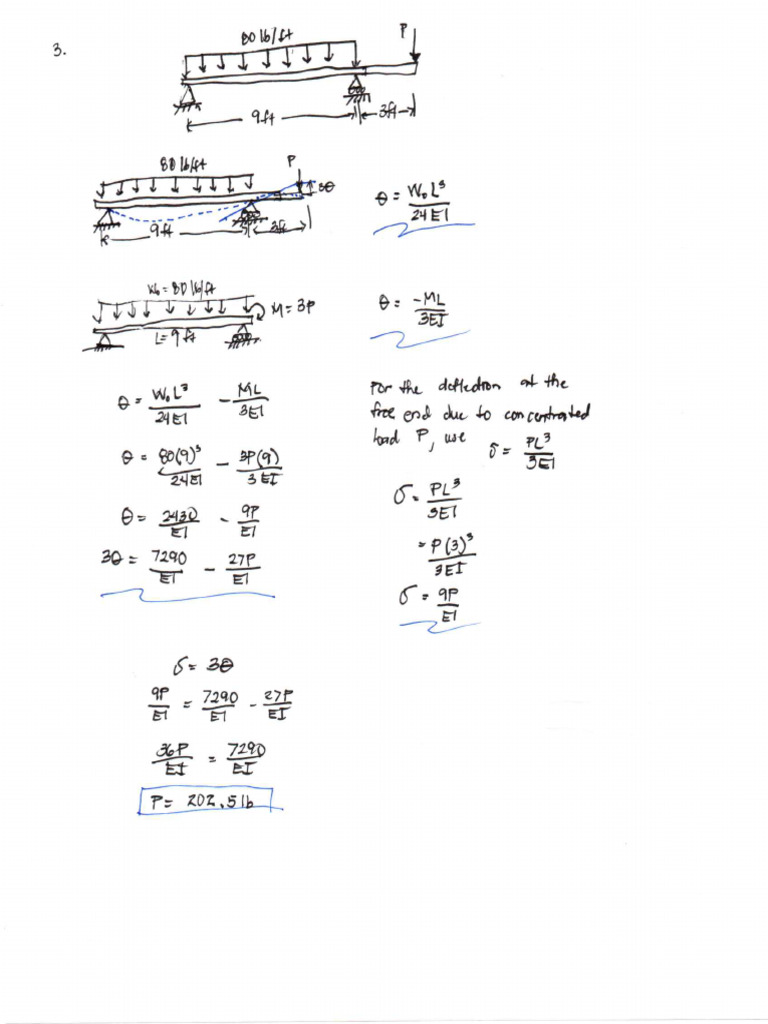 3.
80 lb/ft
P
9 ft
3 ft
80 lb/ft
P
3θ
9 ft
3 ft
θ = W₀L³/24EI
W₀ = 80 lb/ft
M = 3P
L = 9 ft
θ = -ML/3EI
θ = W₀L³/24EI - ML/3EI
θ = 80(9)³/24EI - 3P(9)/3EI
θ = 2430/EI - 9P/EI
3θ = 7290/EI - 27P/EI
For the deflection at the
free end due to concentrated
load P, use δ = PL³/3EI
δ = PL³/3EI
= P(3)³/3EI
δ = 9P/EI
δ = 3θ
9P/EI = 7290/EI - 27P/EI
36P/EI = 7290/EI
P = 202.5 lb